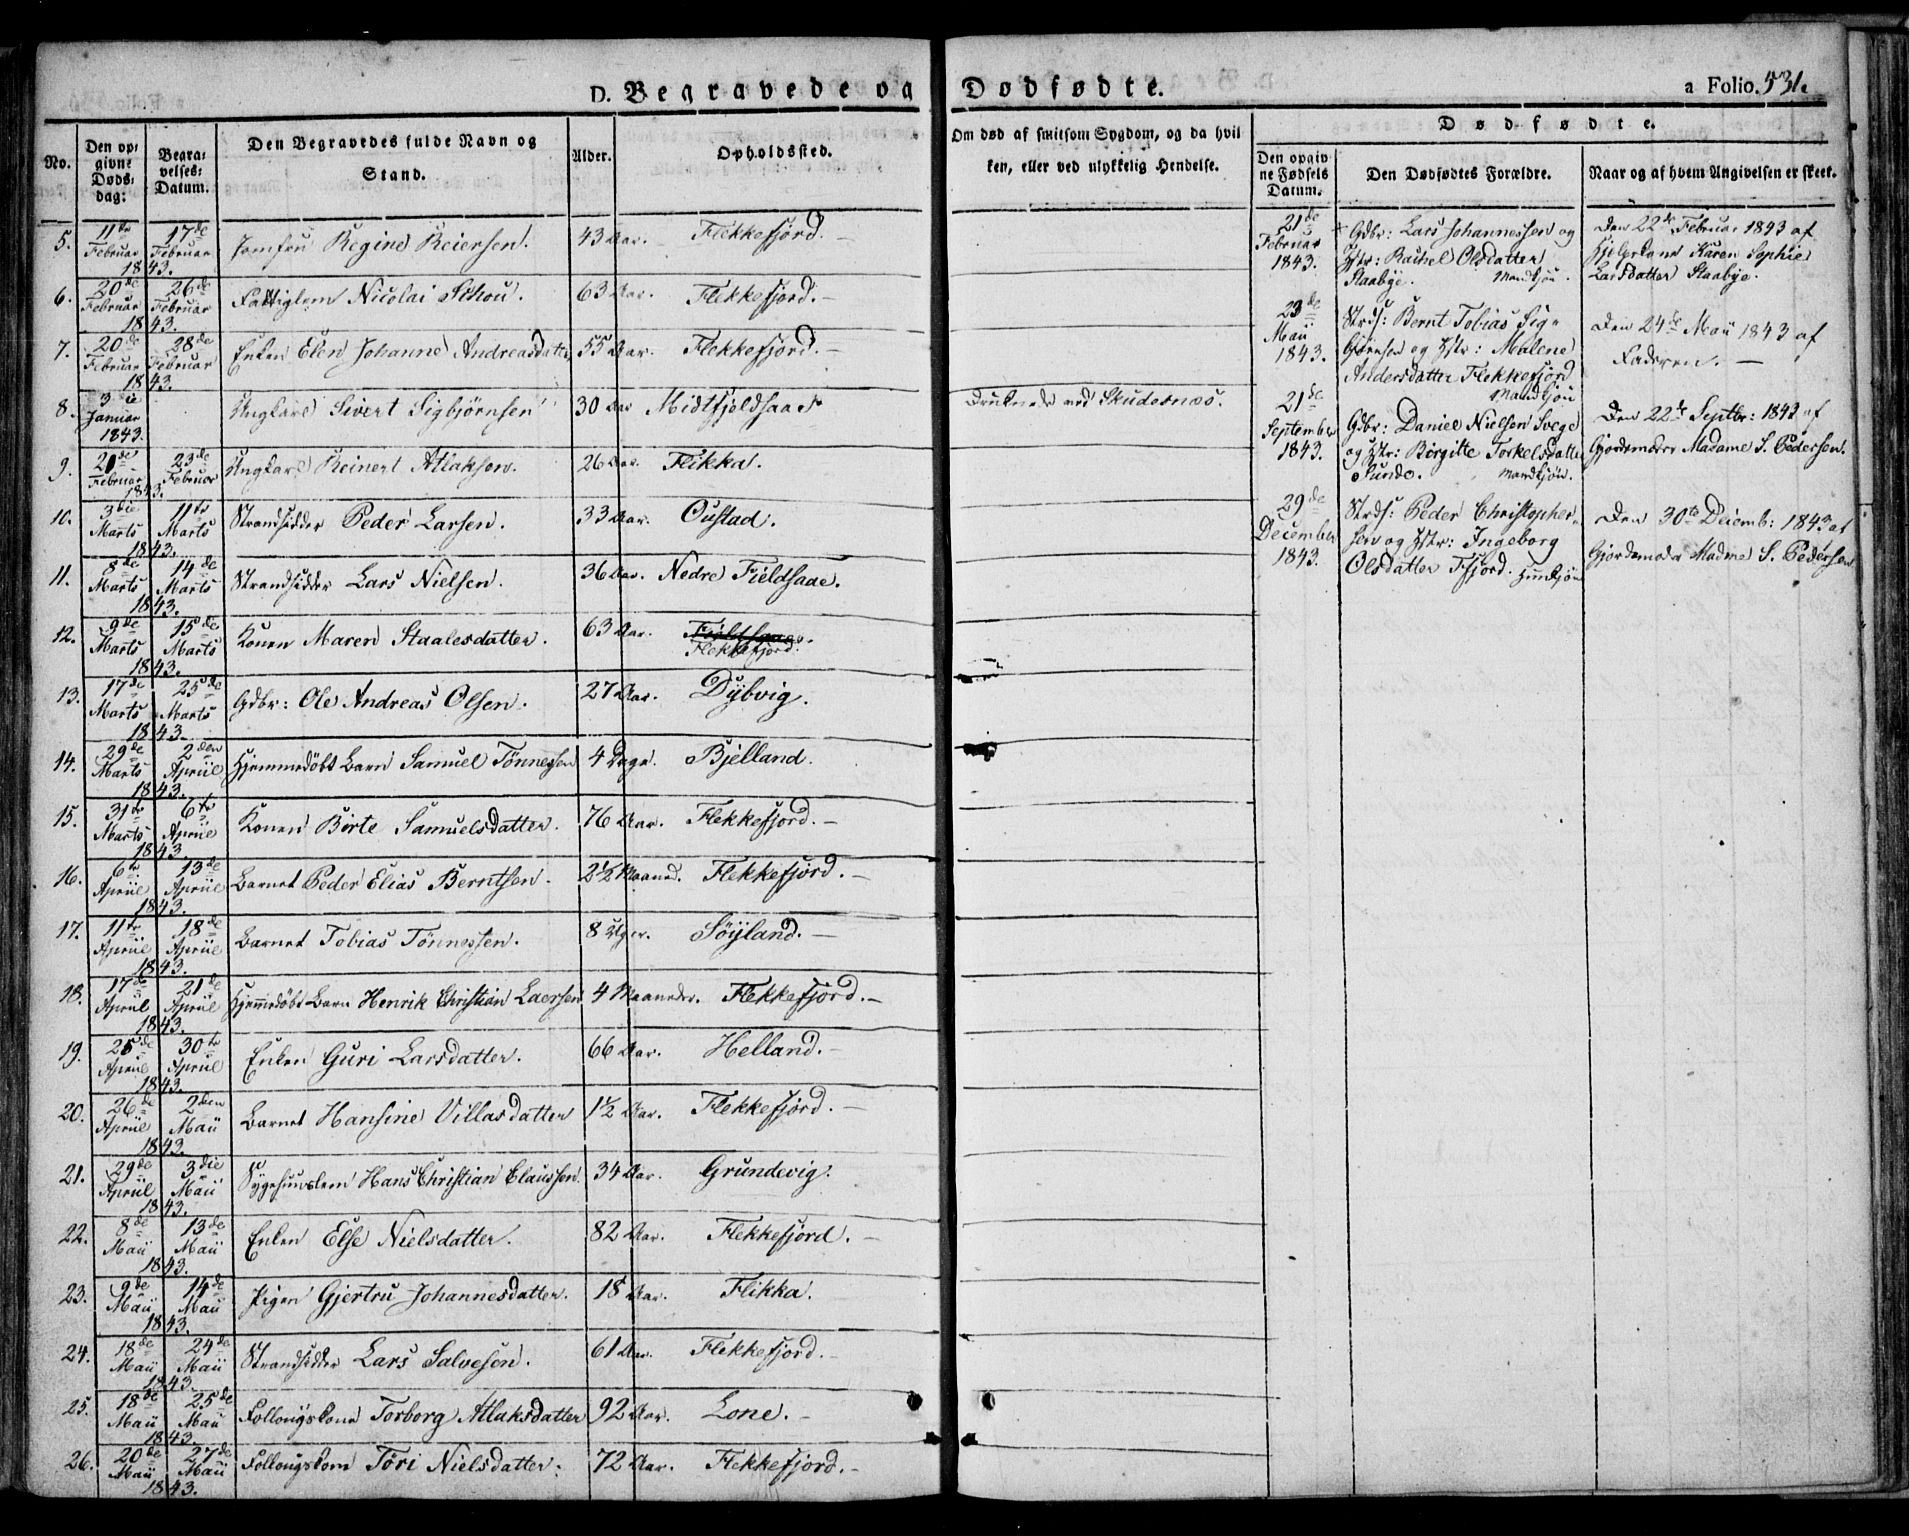 D. Begravede og Dødfødte.
a Folio. 531.
No.
Den opgivne Dødsdag:
Begravelses-Datum.
Den Begravedes fulde Navn og Stand.
Alder.
Opholdssted.
Om død af smitsom Sygdom, og da hvilken, eller ved ulykkelig Hendelse.
Dødfødte.
Den opgivne Fødsels Datum.
Den Dødfødtes Forældre.
Naar og af hvem Angivelsen er skeet.
5. 11te Februar 17de Februar 1843. Jomfru Regine Reiersen. 43 Aar. Flekkefjord.
6. 20de Februar 26de Februar 1843. Fattiglem Nicolai Schou. 63 Aar. Flekkefjord.
7. 20de Februar 28de Februar 1843. Enken Elen Johanne Andreasdatter 55 Aar. Flekkefjord.
8. 3die Januar 1843. Ungkarl Sivert Sigbjörnsen 30 Aar Midtfjeldsaae Druknede ved Skudesnæs.
9. 20de Februar 23de Februar 1843. Ungkarl Reinert Atlaksen. 26 Aar. Flikka.
10. 3die Marts 11te Marts 1843. Strandsidder Peder Larsen. 33 Aar. Oustad.
11. 8de Marts 14de Marts 1843. Strandsidder Lars Nielsen. 36 Aar. Nedre Fieldsaae.
12. 9de Marts 15de Marts 1843. Konen Maren Staalesdatter. 63 Aar. Fieldsaae. Flekkefjord.
13. 17de Marts 25de Marts 1843. Gdbr: Ole Andreas Olsen. 27 Aar. Dybvig.
14. 29de Marts 2den Apriil 1843. Hjemmedöbt Barn Samuel Tönnessen 4 Dage. Bjelland.
15. 31te Marts 6te Apriil 1843. Konen Birte Samuelsdatter. 76 Aar. Flekkefjord.
16. 6te Apriil 13de Apriil 1843. Barnet Peder Elias Berntsen. 2½ Maaned. Flekkefjord.
17. 11te Apriil 18de Apriil 1843. Barnet Tobias Tönnessen. 8 Uger. Söyland.
18. 17de Apriil 21de Apriil 1843. Hjemedöbt Barn Henrik Christian Laersen 4 Maaneder. Flekkefjord.
19. 25de Apriil 30te Apriil 1843. Enken Guri Larsdatter. 66 Aar. Helland.
20. 26de Apriil 2den Maii 1843. Barnet Hansine Villasdatter 1½ Aar. Flekkefjord.
21. 29de Apriil 3die Maii 1843. Hans Christian Claussen. 34 Aar. Grundevig.
22. 8de Maii 13de Maii 1843. Enken Else Nielsdatter. 82 Aar. Flekkefjord.
23. 9de Maii 14de Maii 1843. Pigen Gjertru Johannesdatter. 18 Aar. Flikka.
24. 18de Maii 24de Maii 1843. Strandsidder Lars Salvesen. 61 Aar. Flekkefjord.
25. 18de Maii 25de Maii 1843. Follougskone Torborg Atlaksdatter 92 Aar. Lone.
26. 20de Maii 27de Maii 1843. Follougskone Töri Nielsdatter. 72 Aar. Flekkefjord.
21de Februar 1843.
Gdbr: Lars Johannessen og
Hstr: Rachel Olsdatter
Staabye. Mandkjön.
Den 22de Februar 1843 af
Hjelpekone Karen Sophie
Larsdatter Staabye.
23de Maii 1843.
Strds: Bernt Tobias Sig-
björnsen og Hstr: Malene
Andersdatter Flekkefjord
Mandkjön
Den 24de Maii 1843 af
Faderen.
21de September 1843.
Gdbr: Daniel Nielsen Svege
og Hstr: Birgitte Torkelsdatter
Sunde. Mandkjön.
Den 22de Septbr: 1843 af
Gjordemoder Madame S. Pedersen.
29de December 1843.
Strds: Peder Christopher-
sen og Hstr: Ingeborg
Olsdatter Fjord. Hunkjön
Den 30te Decemb: 1843 af
Gjordemoder Madme S. Pedersen